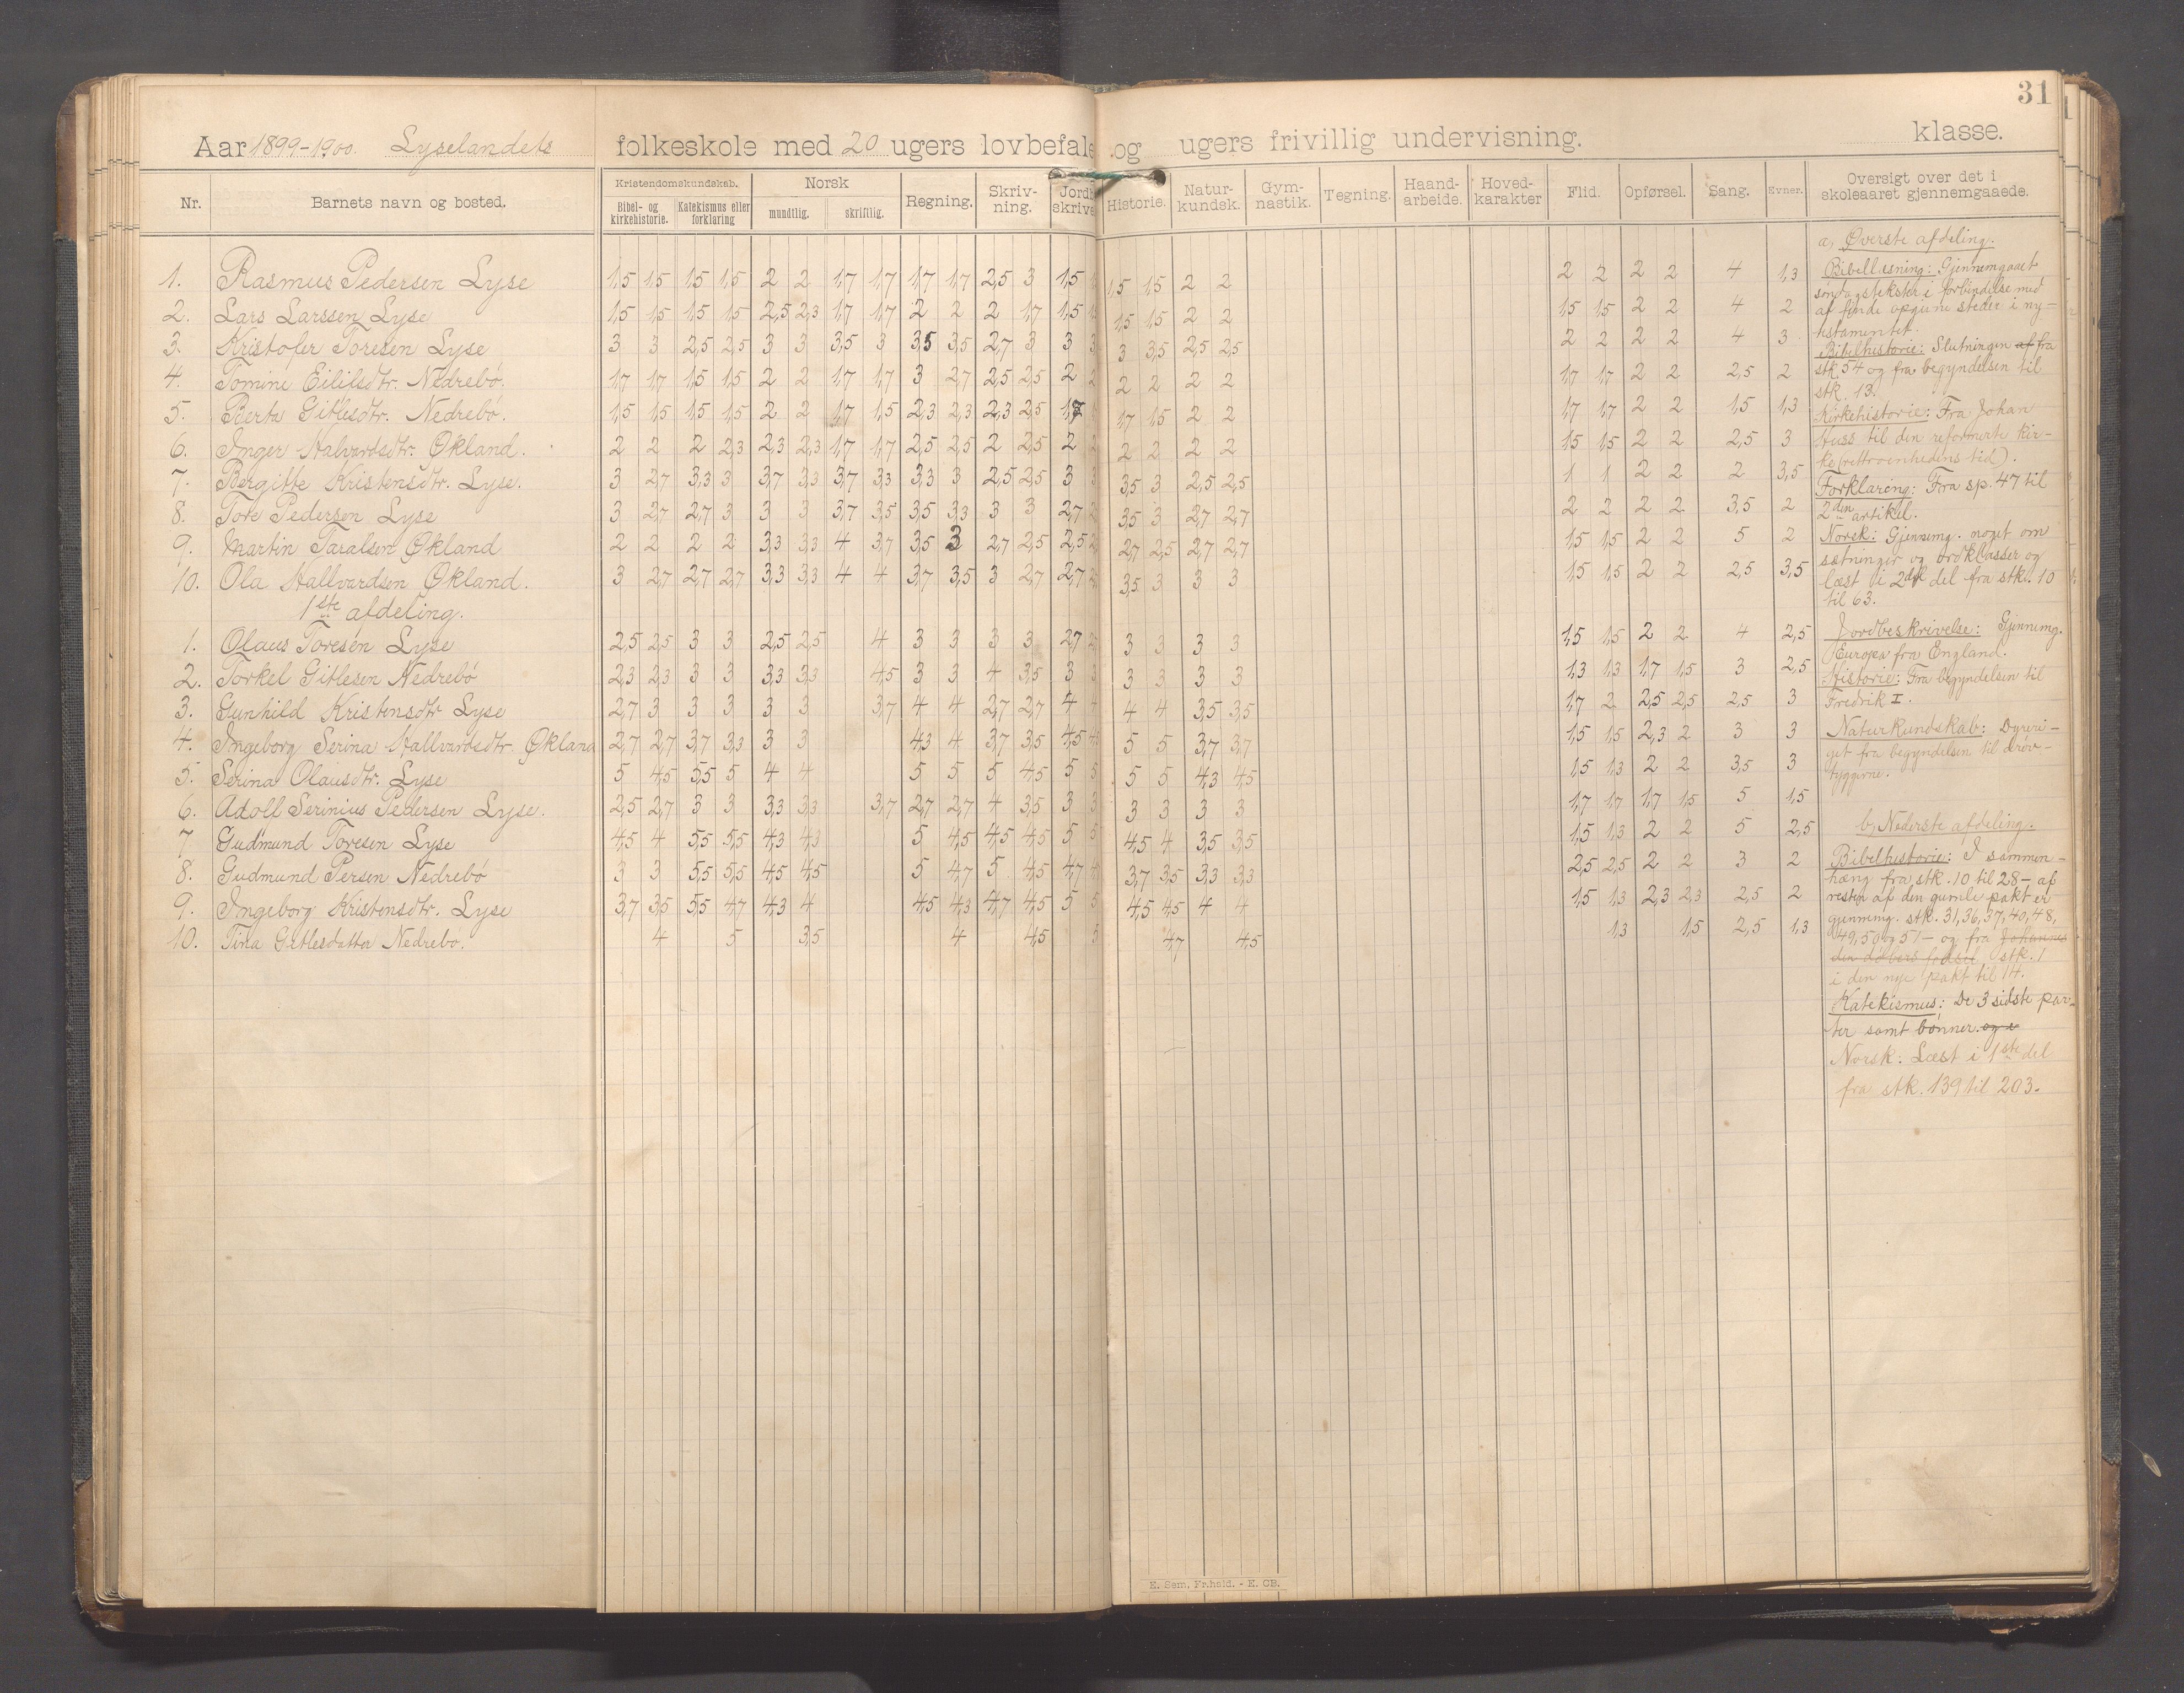 31
Aar 1899-1900. Lyselandets folkeskole med 20 ugers lovbefale og ugers frivillig undervisning. klasse.
Nr. Barnets navn og bosted. Kristendomskundskab. Norsk Regning. Skriv- Jordb Historie. Natur- Gym- Tegning. Haand- Hoved- Flid. Opførsel. Sang. Evner. Oversigt over det i
Bibel- og Katekismus eller mundtlig. skriftlig. ning. skrive kundsk. nastik. arbeide. karakter skoleaaret gjennemgaaede.
kirkehistorie. forklaring
1. Rasmus Pedersen Lyse 1,5 1,5 1,5 1,5 2 2 1,7 1,7 1,7 1,7 2,5 3 1,5 1,5 1,5 2 2 2 2 2 2 4 1,3
2. Lars Larssen Lyse 1,5 1,5 1,5 1,5 2,5 2,3 1,7 1,7 2 2 2 1,7 1,5 1,5 1,5 2 2 1,5 1,5 2 2 4 2
3. Kristofer Toresen Lyse 3 3 2,5 2,5 3 3 3,5 3 3,5 3,5 2,7 3 3 3 3,5 2,5 2,5 2 2 2 2 4 3
4. Tomine Eililsdtr. Nedrebø. 1,7 1,7 1,5 1,5 2 2 1,7 1,7 3 2,7 2,5 2,5 2 2 2 2 2 1,7 1,7 2 2 2,5 2
5. Berta Gitlesdtr. Nedrebø. 1,5 1,5 1,5 1,5 2 2 1,7 1,5 2,3 2,3 2,3 2,5 1,7 1,7 1,5 2 2 1,7 1,7 2 2 1,5 1,3
6. Inger Halvardsdtr. Økland. 2 2 2 2,3 2,3 2,3 1,7 1,7 2,5 2,5 2 2,5 2 2 2 2 2 1,5 1,5 2 2 2,5 3
7. Bergitte Kristensdtr. Lyse. 3 2,7 3,3 3 3,7 3,3 3,7 3,3 3,3 3 2,5 2,5 3 3,5 3 2,5 2,5 1 1 2 2 2 3,5
8. Tore Pedersen Lyse 3 2,7 2,7 3 3 3 3,7 3,5 3,5 3,3 3 3 2,7 3,5 3 2,7 2,7 2 2 2 2 3,5 2
9. Martin Taralsen Økland 2 2 2 2 3,3 3,3 4 3,7 3,5 3 2,7 2,5 2,5 2,7 2,5 2,7 2,7 1,5 1,5 2 2 5 2
10. Ola Hallvardsen Økland. 3 2,7 2,7 2,7 3,3 3,3 4 4 3,7 3,5 3 2,7 2,7 3,5 3 3 3 1,5 1,5 2 2 2,5 3,5
1ste afdeling.
1. Olaus Toresen Lyse 2,5 2,5 3 3 2,5 2,5 4 3 3 3 3 2,7 3 3 3 3 1,5 1,5 2 2 4 2,5
2. Torkel Gitlesen Nedrebø 2,3 2,3 3 3 3,3 3,3 4,5 3 3 4 3,5 3 3 3 3 3 1,3 1,3 1,7 1,5 3 2,5
3. Gunhild Kristensdtr Lyse 2,7 3 3 3 3 3 3,7 4 4 2,7 2,7 4 4 4 3,5 3,5 1,7 2 2,5 2,5 2,5 3
4. Ingeborg Serina Hallvardsdtr. Økland 2,7 2,7 3,7 3,3 3 3 4,3 4 3,7 3,5 4,5 5 5 3,7 3,7 1,5 1,5 2,3 2 3 3
5. Serina Olausdtr. Lyse 5 4,5 5,5 5 4 4 5 5 5 4,5 5 5 5 4,3 4,5 1,5 1,3 2 2 3,5 3
6. Adolf Serinius Pedersen Lyse. 2,5 2,7 3 3 3,3 3,3 3,7 2,7 2,7 4 3,5 3 3 3 3 3 1,7 1,7 1,7 1,5 5 1,5
7 Gudmund Toresen Lyse 4,5 4 5,5 5,5 4,3 4,3 5 4,5 4,5 4,5 5 4,5 4 3,5 3,5 1,5 1,3 2 2 5 2,5
8. Gudmund Persen Nedrebø 3 3 5,5 5,5 4,5 4,5 5 4,7 5 4,5 4,7 3,7 3,5 3,3 3,3 2,5 2,5 2 2 3 2
9. Ingeborg Kristensdtr. Lyse 3,7 3,5 5,5 4,7 4,3 4 4,5 4,3 4,7 4,5 5 4,5 4,5 4 4 1,5 1,3 2,3 2,3 2,5 2
10. Tina Gitlesdatter Nedrebø. 4 5 3,5 4 4,5 4,7 4,5 1,3 1,5 2,5 1,3
a, Øverste afdeling.
Bibellæsning: Gjennemgaaet
søndagstekster i forbindelse med
at finde opgivne steder i ny-
testamentet.
Bibelhistorie: Slutningen af fra
stk. 54 og fra begyndelsen til
stk. 13.
Kirkehistorie: Fra Johan
Huss til den reformerte kir-
ke (rettroenhedens tid).
Forklaring: Fra sp. 47 til
2den artikel.
Norsk: Gjennemg. noget om
sætninger og ordklasser og
læst i 2den del fra stk. 10
til 63.
Jordbeskrivelse: Gjennemg.
Europa fra England.
Historie: Fra begyndelsen til
Fredrik I.
Naturkundskab: Dyreri-
get fra begyndelsen til drøv-
tyggerne.
b, Nederste afdeling.
Bibelhistorie: I sammen-
hæng fra stk. 10 til 28 - af
resten af den gamle pakt er
gjennemg. stk. 31, 36, 37, 40, 48,
49, 50 og 51 - og fra Johannes
den døbers fødsel stk. 1
i den nye pakt til 14.
Katekismus: De 3 sidste par-
ter samt bønner. og e
Norsk: Læst i 1ste del
fra stk. 139 til 203.
E. Sem, Fr.hald. - E. CB.